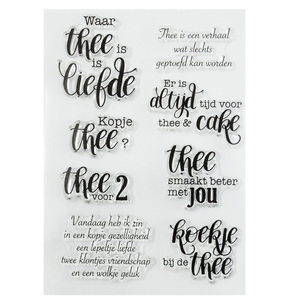 Waar
thee is
is
liefde
Kopje
thee?
thee
voor 2
Vandaag heb ik zin
in een kopje gezelligheid
een lepeltje liefde
twee klontjes vriendschap
en een wolkje geluk
Thee is een verhaal
wat slechts
geproefd kan worden
Er is
altijd tijd voor
thee & cake
thee
smaakt beter
met jou
koekje
bij de thee